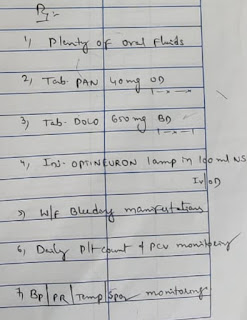 Rx:-
1, Plenty of oral fluids
2, Tab- PAN 40mg OD
1-x-x
3, Tab- DOLO 650mg BD
1-x-1
4, Inj- OPTINEURON 1amp in 100ml NS
IV/OD
5, W/F Bleeding manifestations
6, Daily Plt count & PCV monitoring
7, BP/PR/Temp/Spo2 monitoring